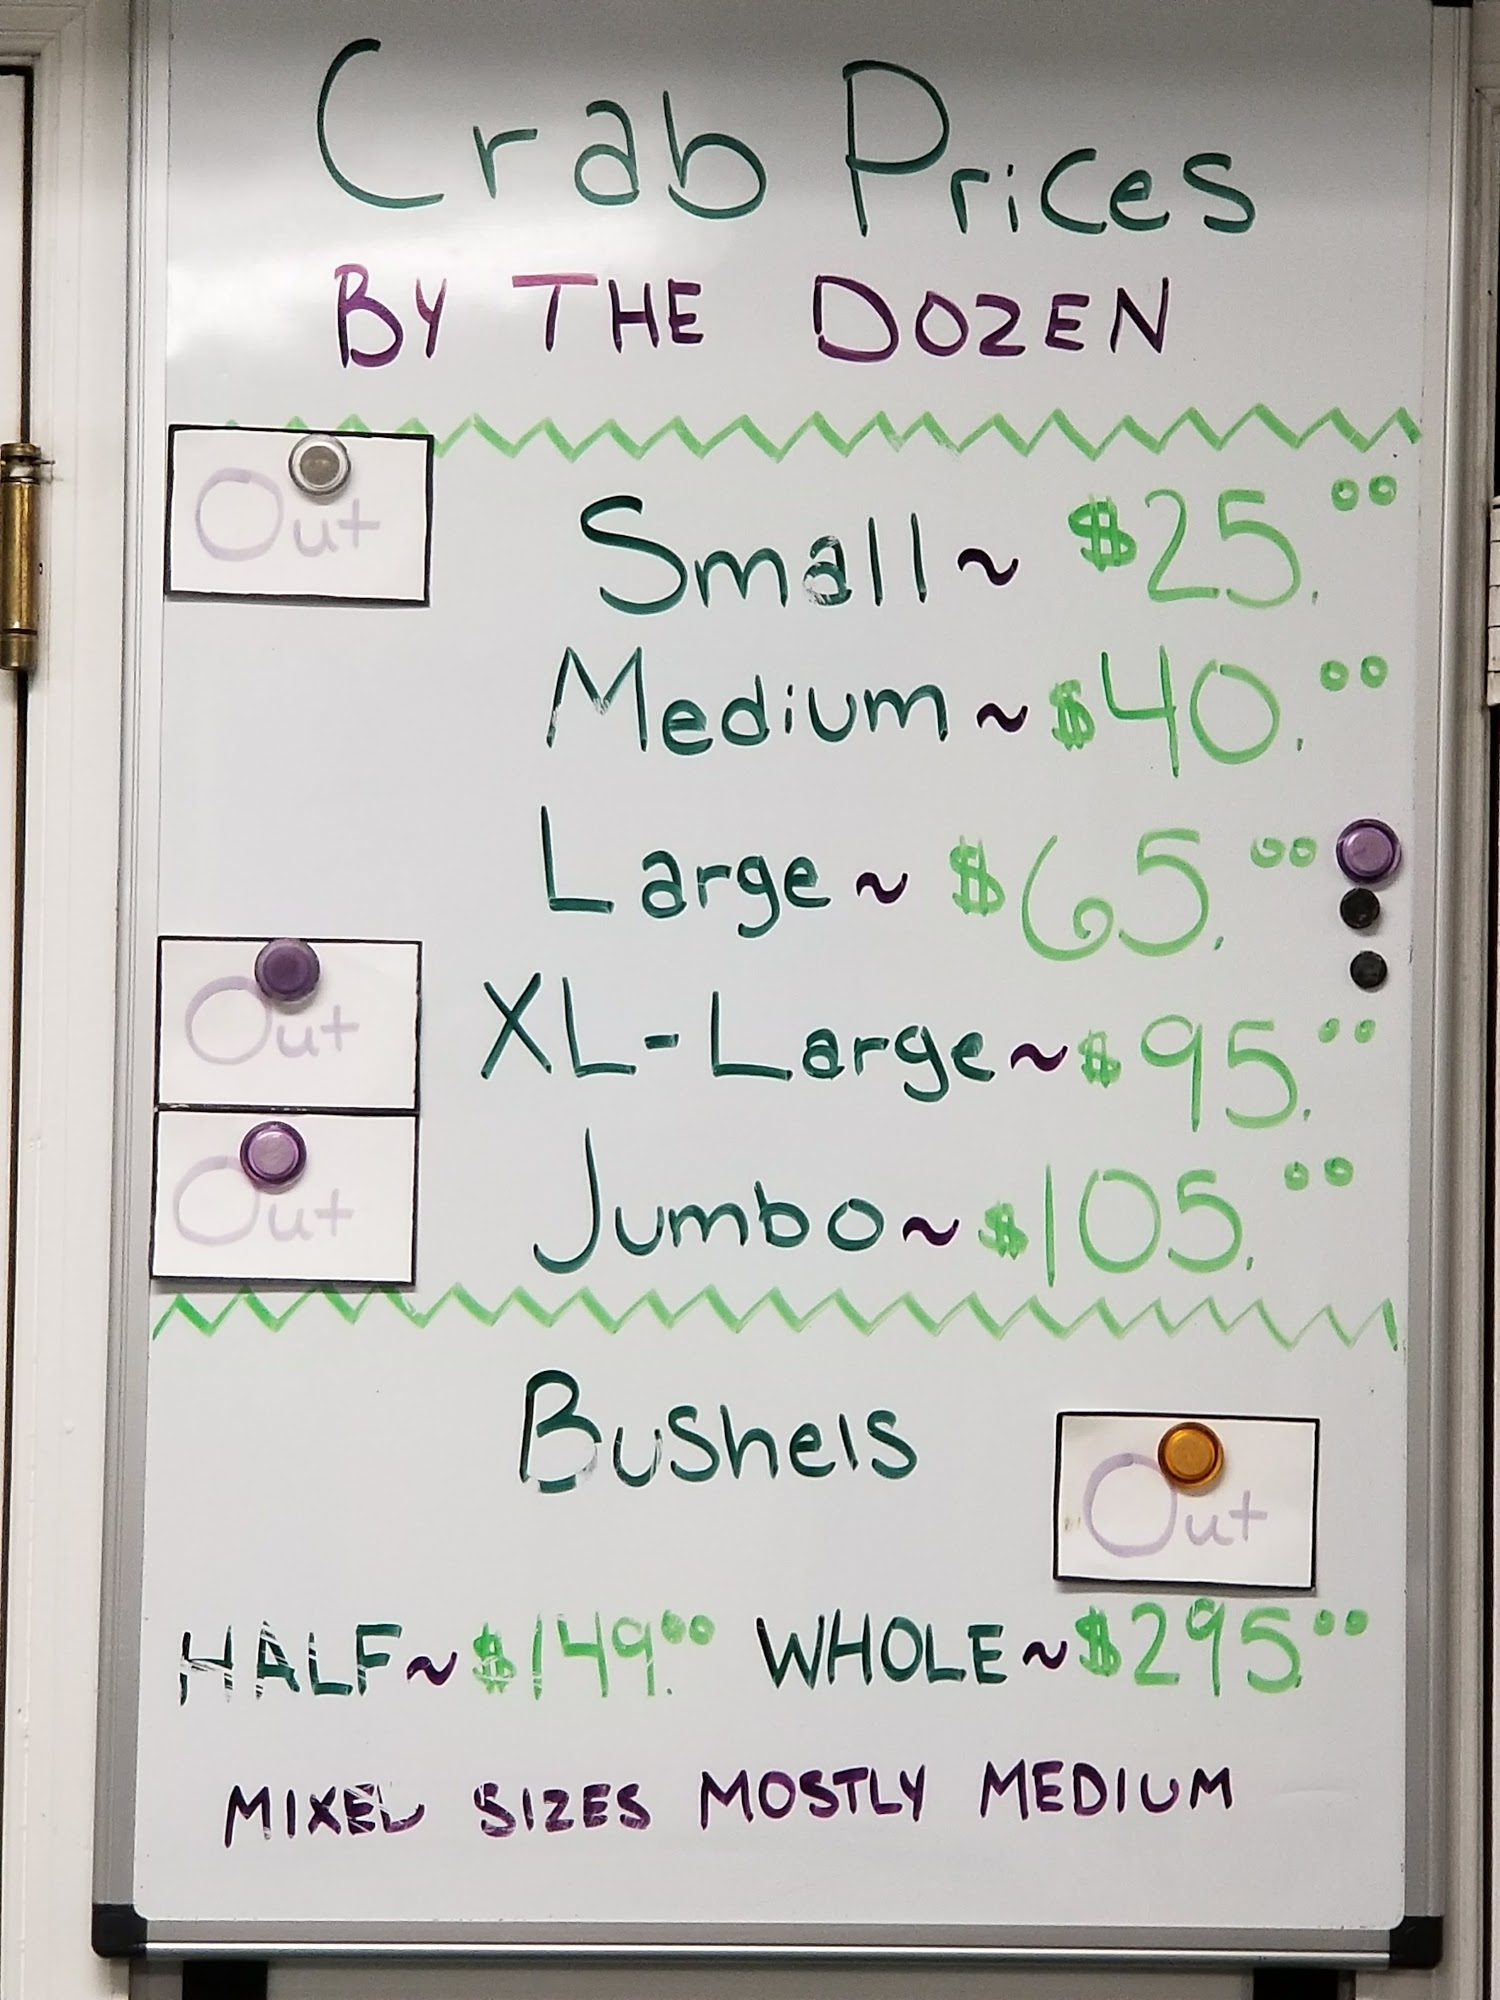 Crab Prices
BY THE DOZEN
Out Small ~ $25.00
Medium ~ $40.00
Large ~ $65.00
Out XL-Large ~ $95.00
Out Jumbo ~ $105.00
Bushels
Out
HALF ~ $149.00 WHOLE ~ $295.00
MIXED SIZES MOSTLY MEDIUM